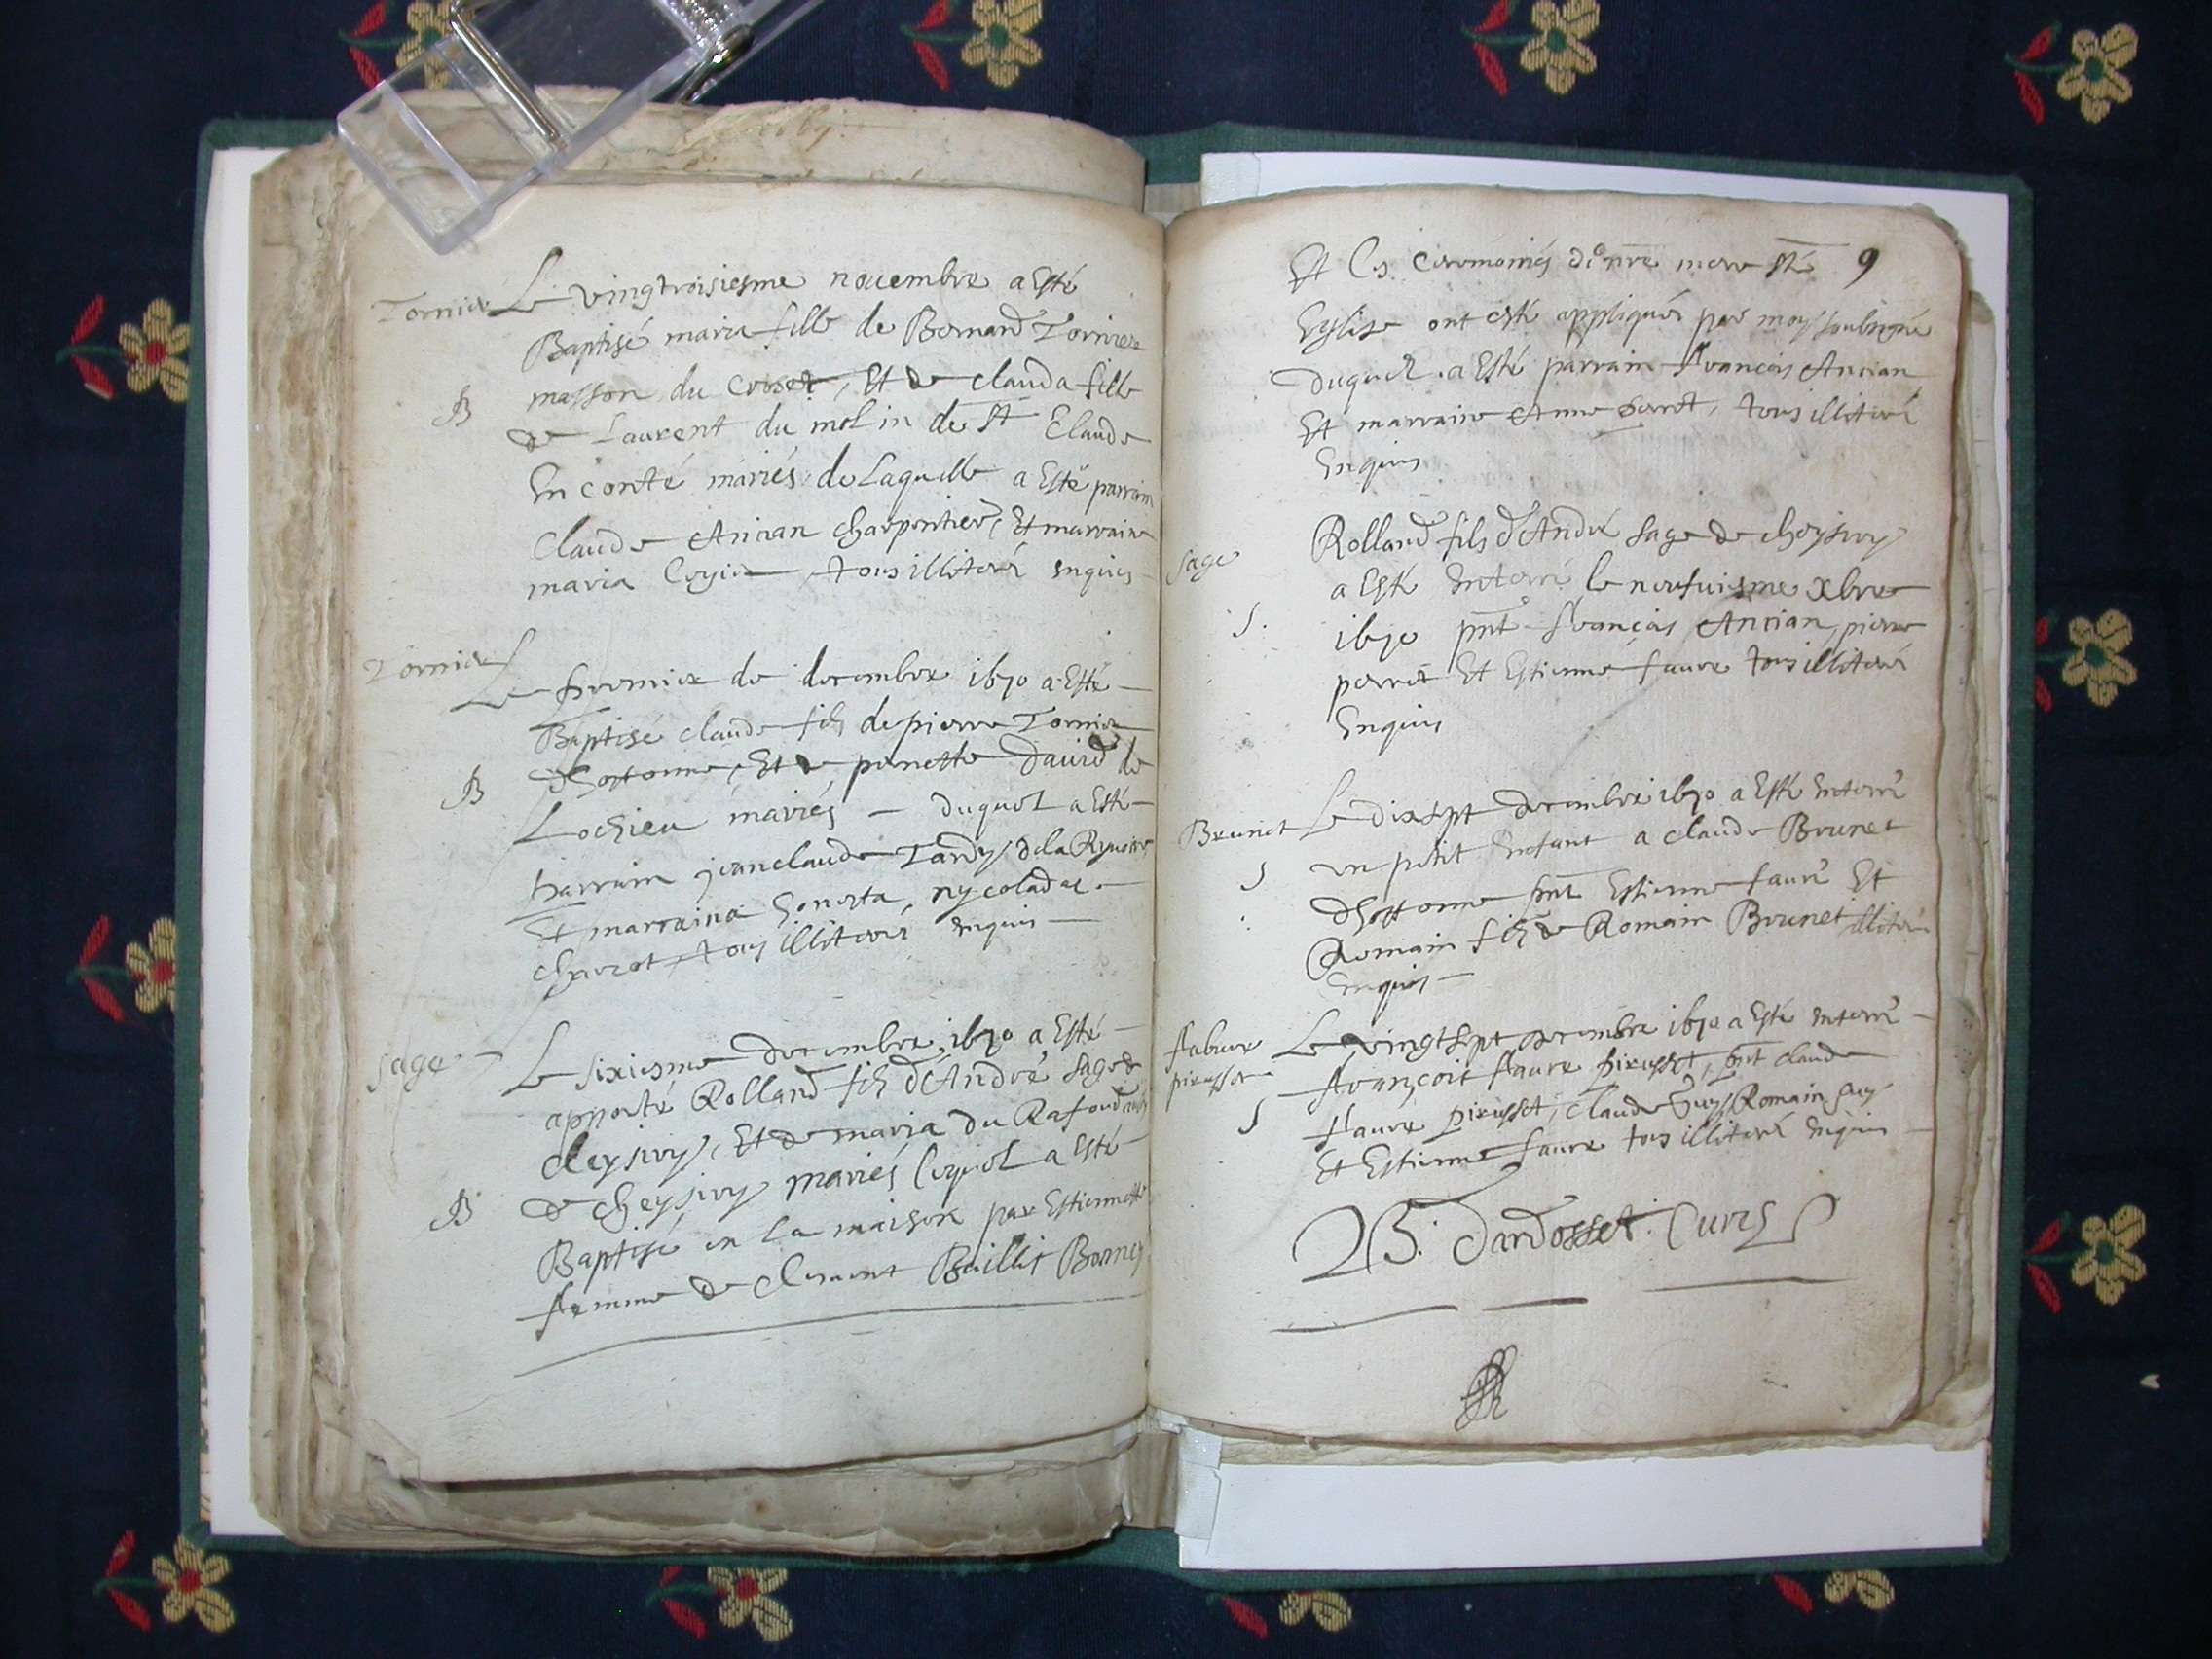 Tornier Le vingtroisiesme nouembre a Esté
Baptisé maria fille de Bernard Tornier
masson du Croset, Et de clauda fille
B
de Laurent du molin de St Claude
En conté mariés de Laquelle a Esté parrain
Claude Ancian charpentier, Et marraine
maria tous illiterés enquis
Tornier
Le premier de decembre 1670 a Esté
Baptisé claude fils de pierre Tornier
dhostonne, Et de pernette Dauid de
B
Lochieu mariés duquel a Esté
parrain jean claude Tardy de la
Et marraina honesta, nycolada
tous illiterés enquis
sage
Le sixiesme decembre 1670 a Esté
apporté Rolland fils d'André sage de
cheysiry, Et de maria du Rafour
de cheysiry mariés lequel a Esté
B
Baptisé en La maison par Estiennette
femme de clement Baillit
Et les Ceremonies de nre mere Ste 9
Eglise ont esté appliqués par moy soubsigné
duquel a Esté parrain francois Ancian
Et marraine Anne perret, tous illiterés
Enquis
sage
Rolland fils d'André sage de cheysiry
a Esté Enterré le neufuiesme xbre
S.
1670 pnt francois Ancian, pierre
perret Et Estienne faure tous illiterés
Enquis
Brunet Le dixsept decembre 1670 a Esté Enterré
un petit Enfant a claude Brunet
S
dhostonne pnt Estienne faure Et
Romain fils de Romain Brunet illiterés
Enquis
fabure Le vingtsept decembre 1670 a Esté Enterré
pirusset
françois faure pirusset, pnt claude
S
faure pirusset, claude Guy Romain Guy
Et Estienne faure tous illiterés Enquis
Dardosset Curé